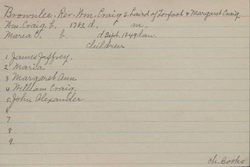 Brownlee, Rev. Hon. Craig 2. Laird of Torfoot & Margaret Craig
Wm. Craig b. 1783 d. m.
Maria b. d Sept. 1849
Children
1. James Jaffrey.
2. Maria
3. Margaret Ann
4. William Craig
5. John Alexander
6
7
8
9.